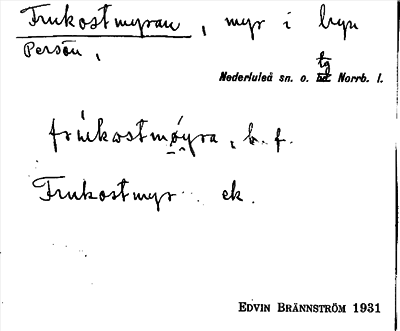 Frukostmyran, myr i byn
Persön,
tg
Nederluleå sn. o. hd Norrb. l.
frúkostmøyra, b. f.
Frukostmyr ek.
EDVIN BRÄNNSTRÖM 1931